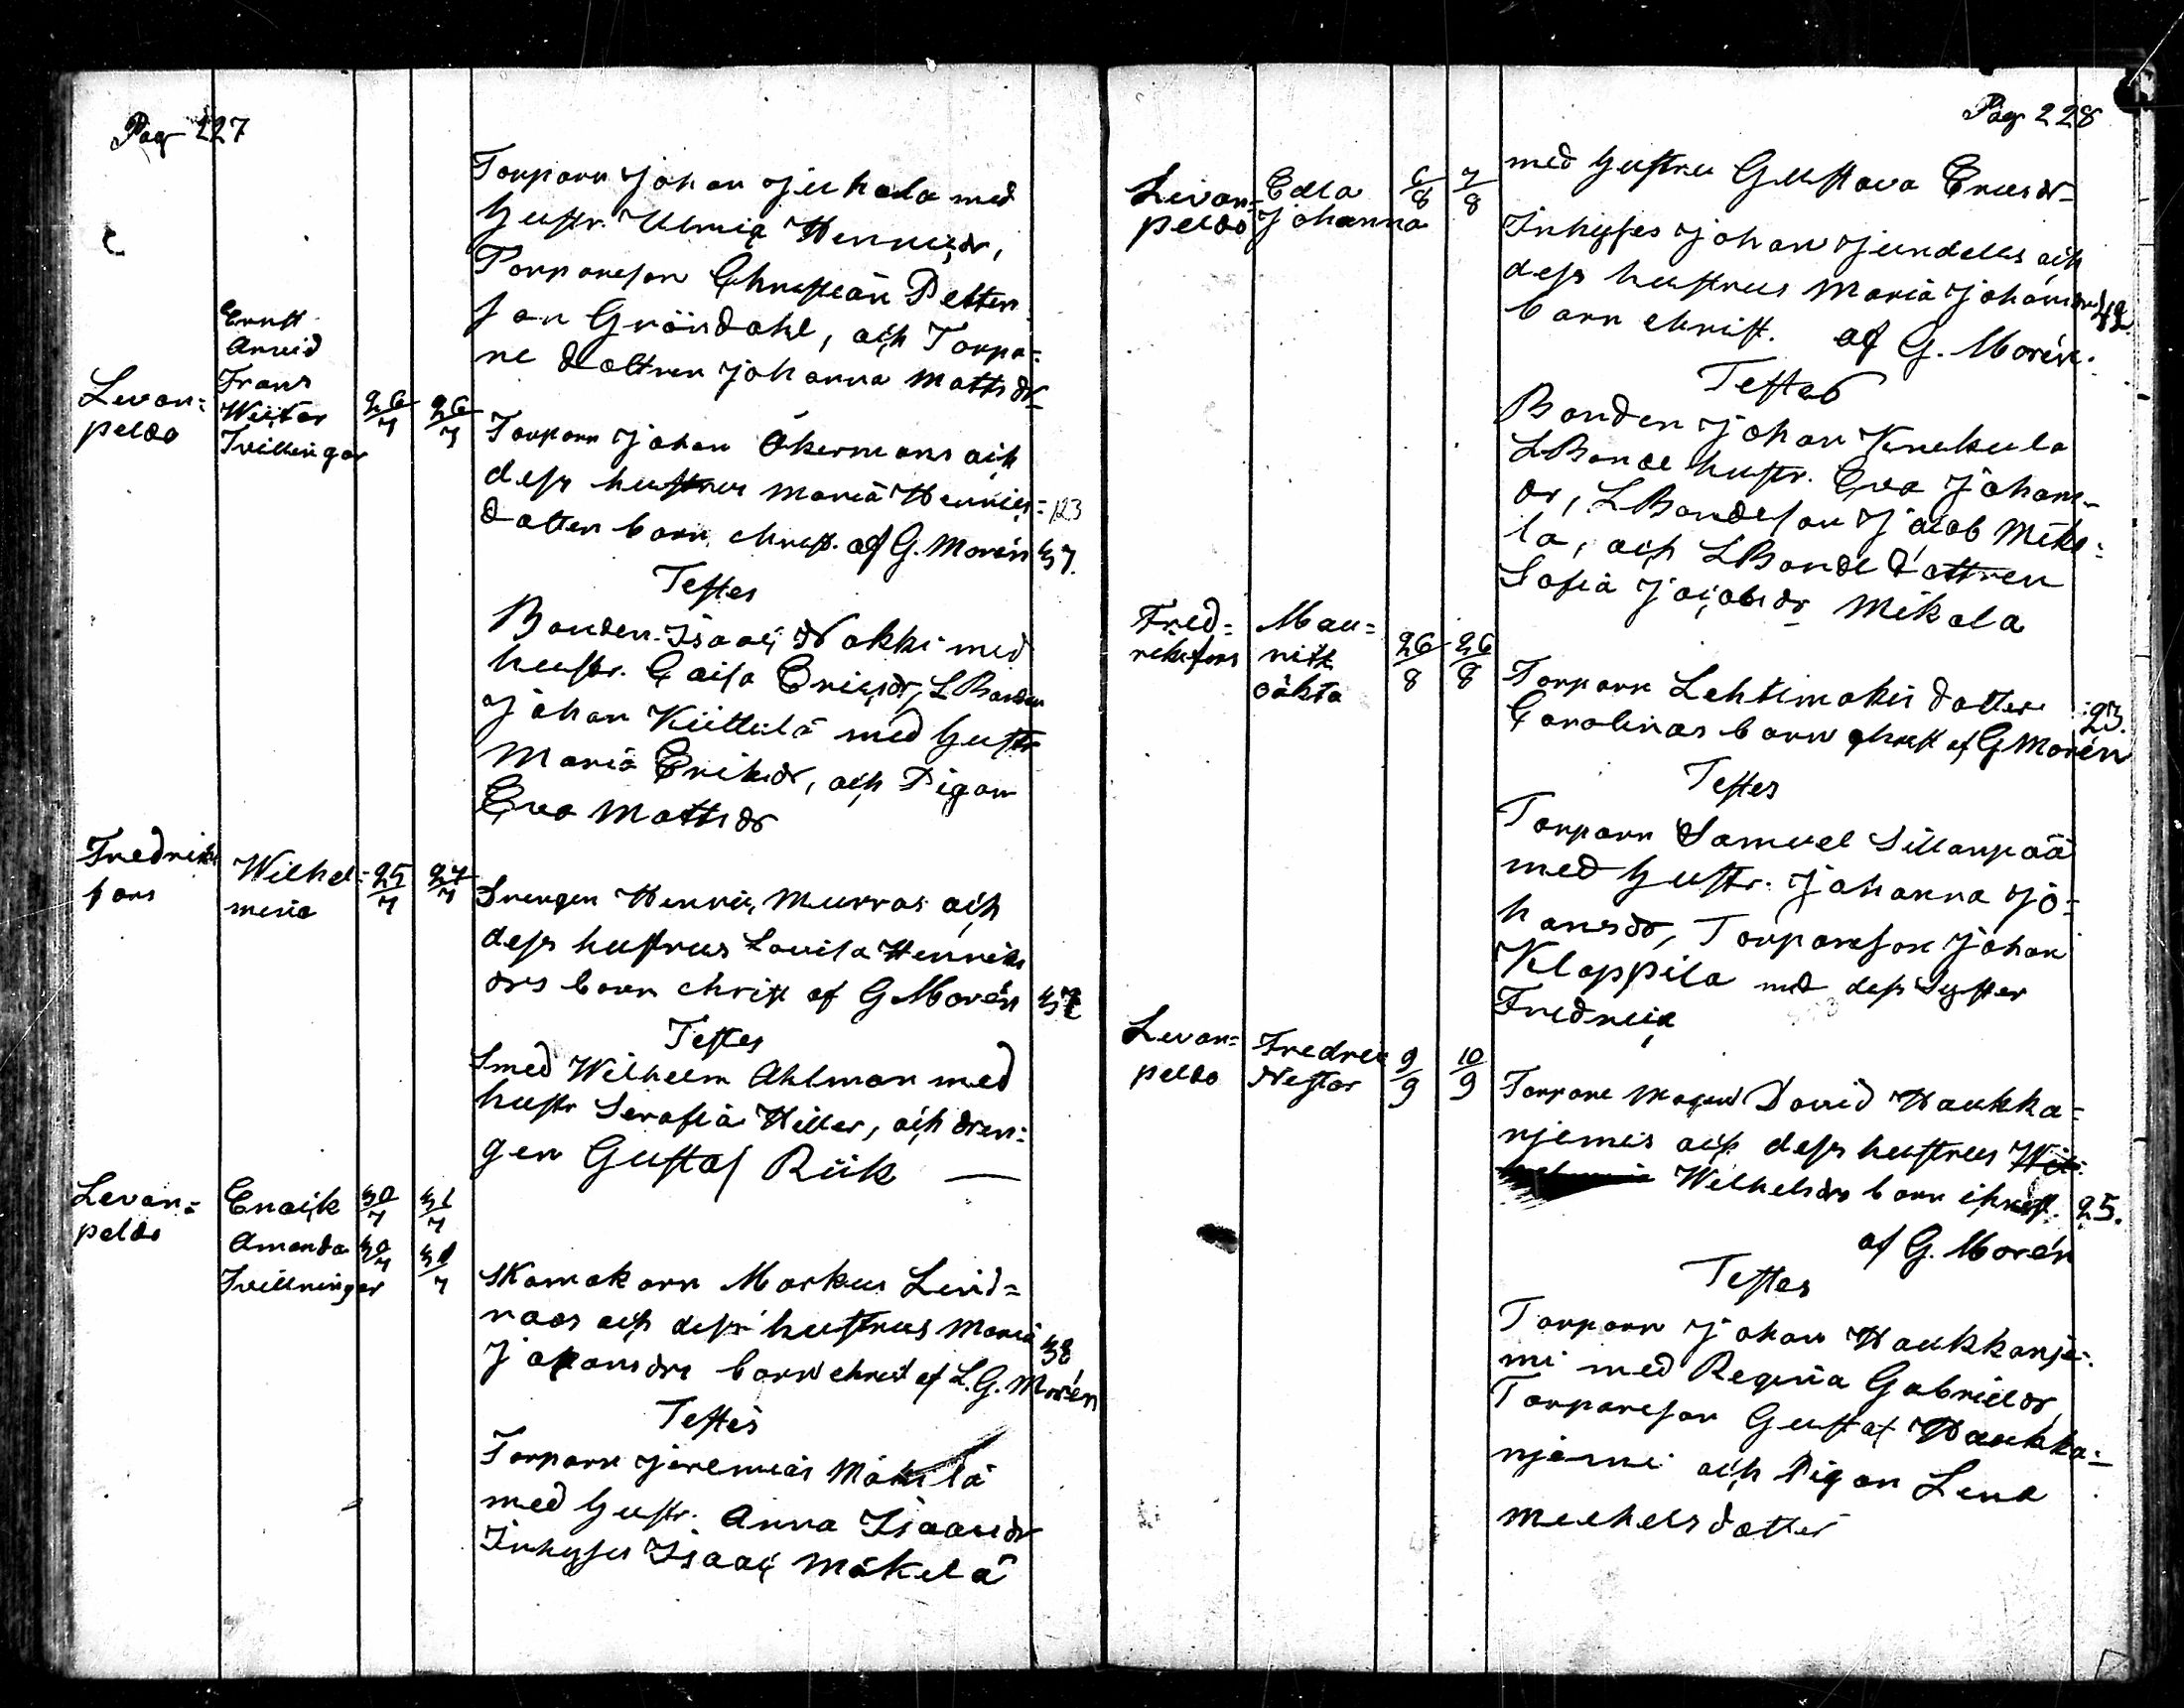 Pag 227
Torparn Johan Juhola med
hustr. Ulrica Henricsdr,
Torpareson Christian Petter
son Gröndahl, och Torpa=
re dottren Johanna Mattsdr
Levan=
peldo
Ernst
Arvid
Frans
Victor
Tvillingar
26/7 26/7
Torparn Johan Åkermans och
dess hustrus Maria Henrics= 123
dotter barn, christ. af G. Morén 37.
Testes
Bonden Isaac Nokki med
hustr. Caisa Ericsdr, LBonden
Johan Kiittilä med hustr
Maria Eriksdr, och Pigan
Eva Mattsdr
Fredriks
fors
Wilhel=
mina
25/7 27/7
Drengen Henric Murros och
dess hustrus Lovisa Henriks
drs barn christ af G Morén 32
Testes
Smed Wilhelm Ahlman med
hustr Serafia Hiller, och dren=
gen Gustaf Riik —
Levan=
peldo
Enoch 30/7 31/7
Amanda 30/7 31/7
Tvillningar
Skomakarn Markus Lind=
roos och dess hustrus Maria 38
Johansdrs barn christ af L. G. Morén
Testes
Torparn Jeremias Mäkilä
med hustr. Anna Isaacsdr
Inhyses Isaac Mäkelä
Pag 228
med hustru Gustava Ericsdr
Levan=
peldo
Edla
Johanna
6/8 7/8
Inhyses Johan Jundells och
dess hustrus Maria Johansdrs 42
barn christ. af G. Morén.
Testes
Bonden Johan Knukula
LBonde hustr. Eva Johans=
dr, LBondeson Jacob Miko=
la, och LBonde dottren
Sofia Jacobsdr Mikola
Fred=
riksfors
Mau=
ritz
oäkta
26/8 26/8
Torparn Lehtimäkis dotter 23.
Carolinas barn christ af G Morén
Testes
Torparn Samuel Sillanpää
med hustr. Johanna Jo=
hansdr, Torpareson Johan
Klappila med dess Syster
Fredrica
Levan=
peldo
Fredric
Nestor
9/9 10/9
Torpare Magen David Haukka=
njemis och dess hustrus Wil=
helmi Wilhelsdrs barn christ. 25.
af G. Morén
Testes
Torparn Johan Haukkanje=
mi med Regina Gabrielsdr,
Torpareson Gustaf Haukka=
njemi och Pigan Lena
Michelsdotter